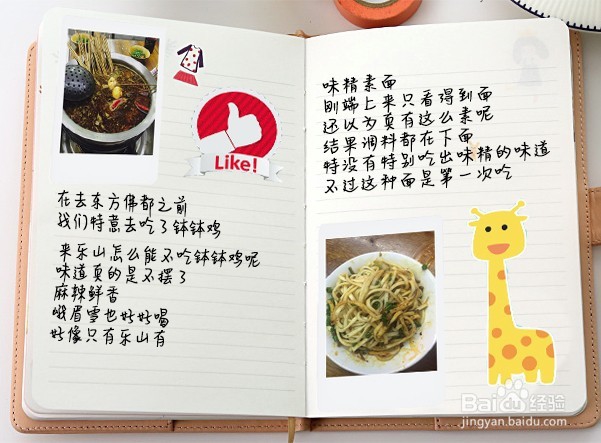 Like!
在去东方佛都之前
我们特意去吃了钵钵鸡
来乐山怎么能不吃钵钵鸡呢
味道真的是不摆了
麻辣鲜香
峨眉雪也好好喝
好像只有乐山有
味精素面
刚端上来只看得到面
还以为真有这么素呢
结果调料都在下面
特没有特别吃出味精的味道
不过这种面是第一次吃
Baidu经验
jingyan.baidu.com